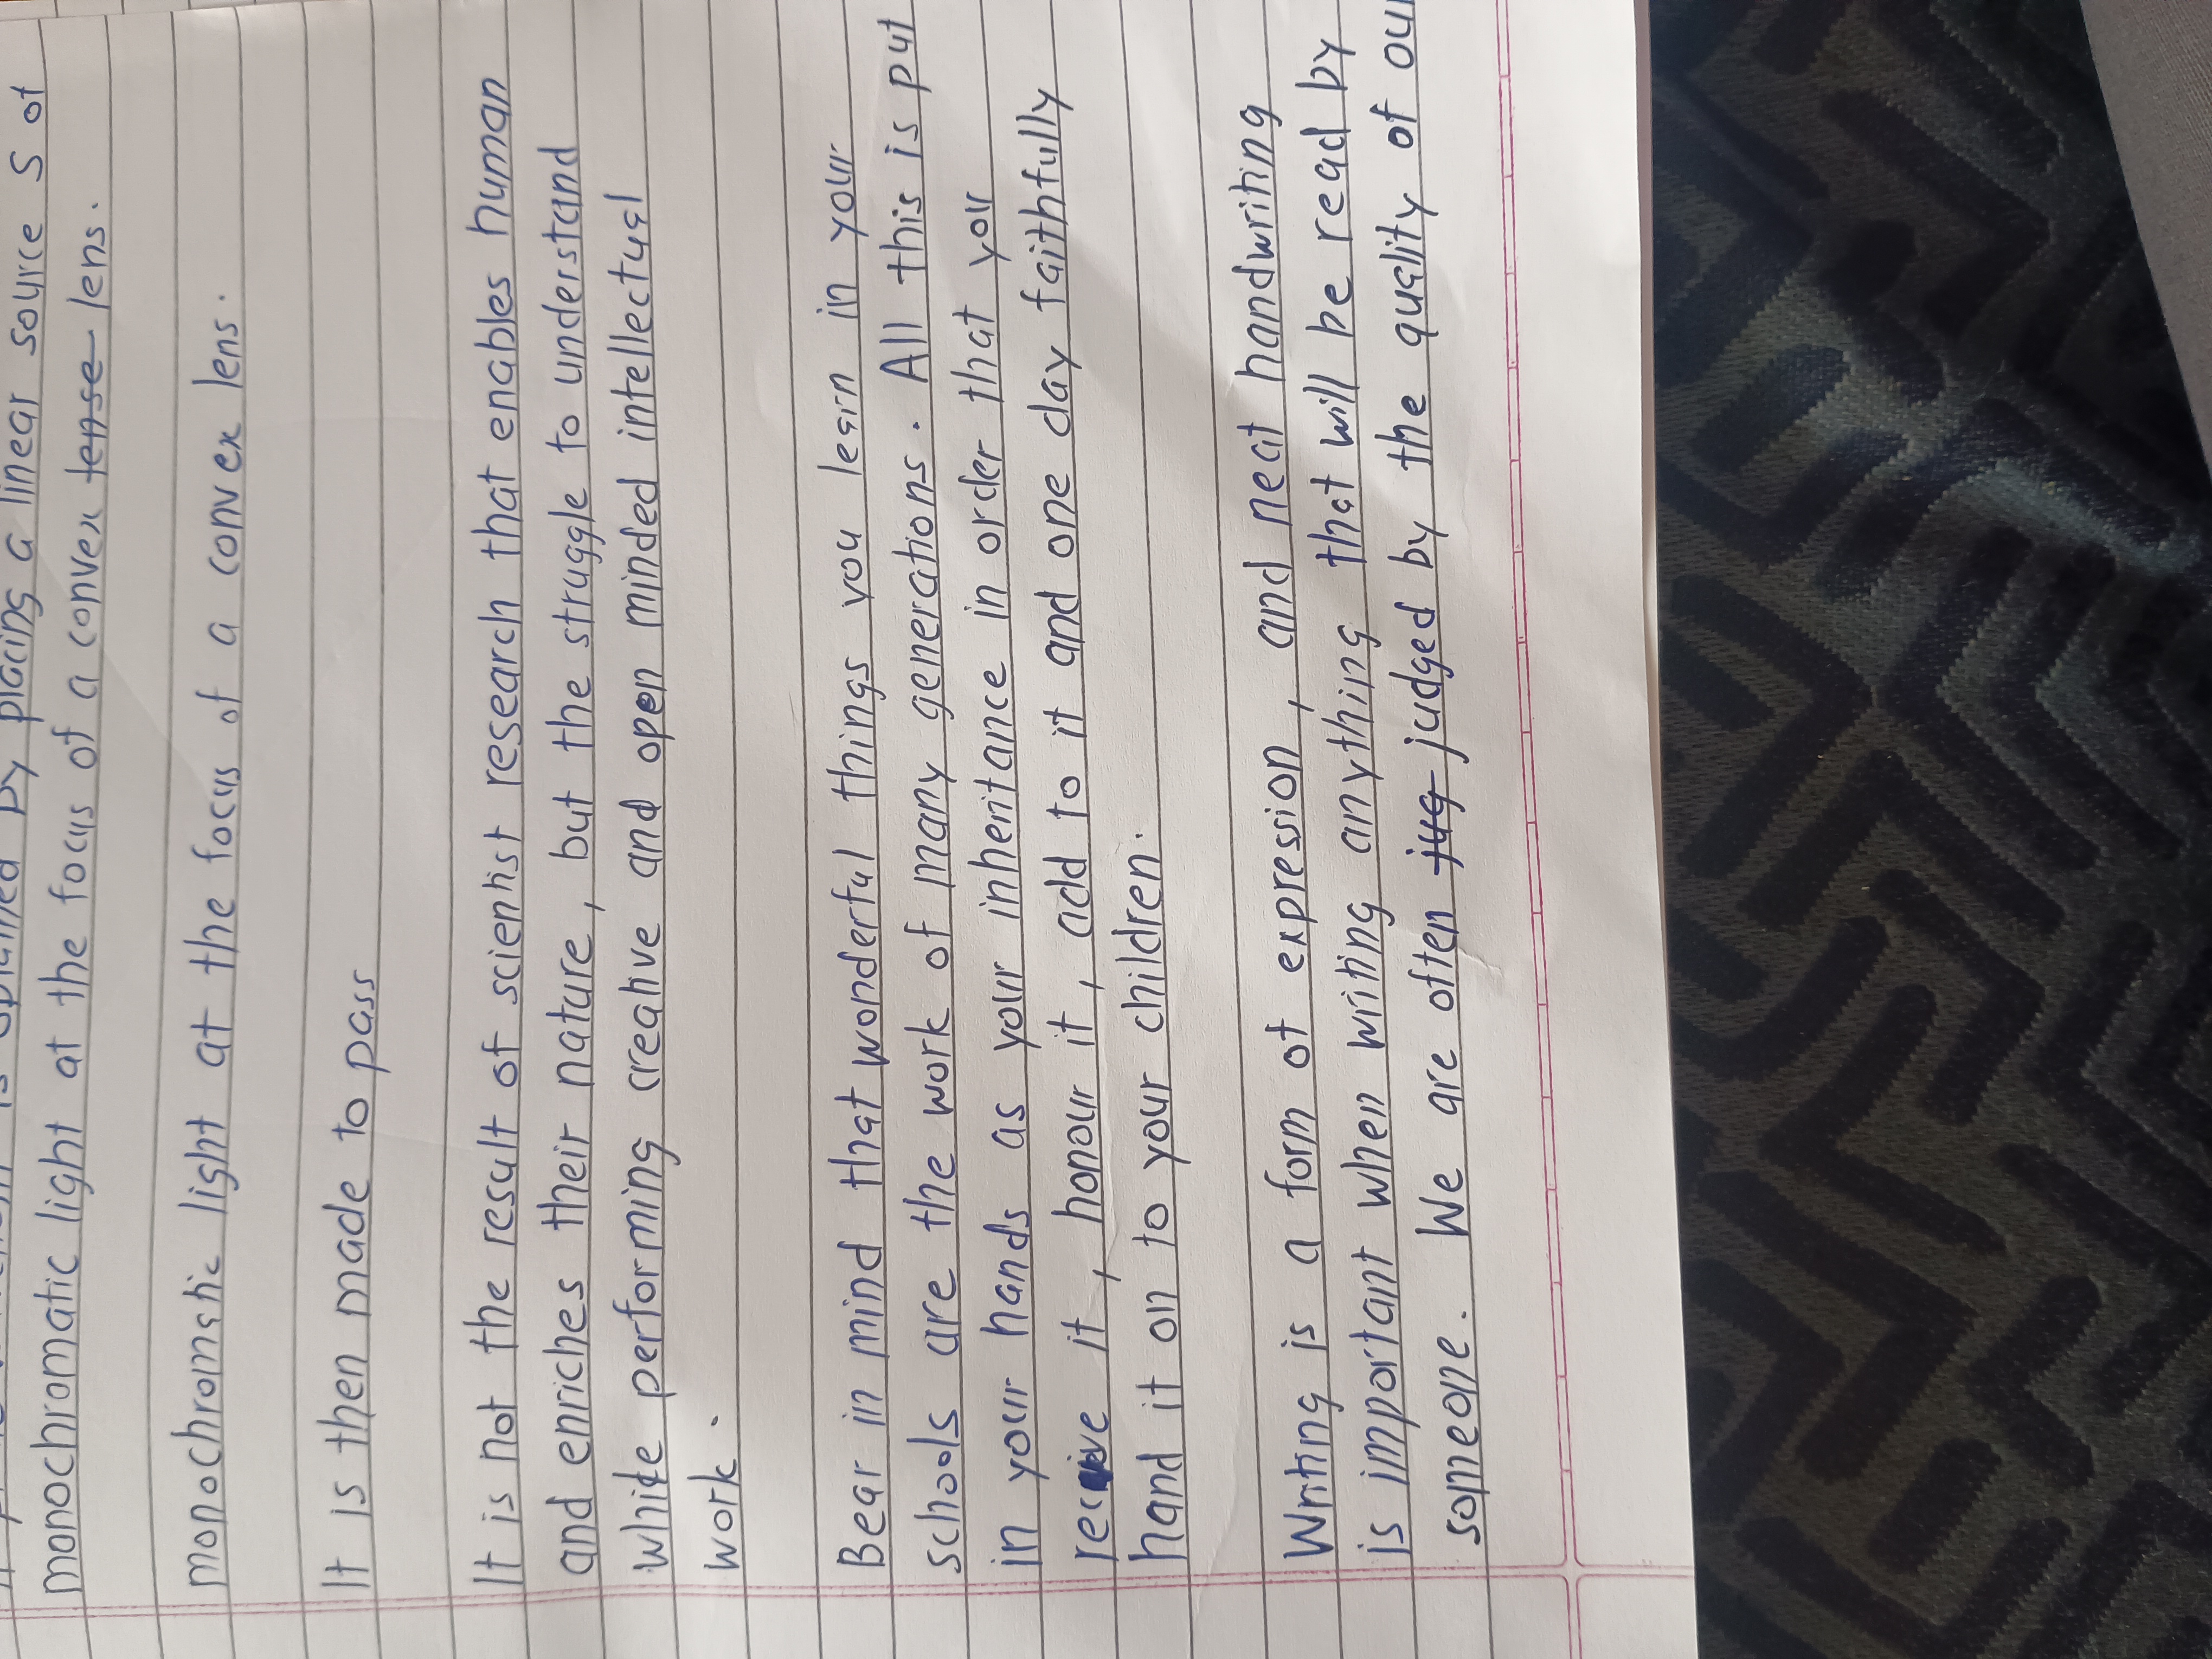 is obtained by placing a linear source S of
monochromatic light at the focus of a convex tense lens.
monochromatic light at the focus of a convex lens.
It is then made to pass
It is not the result of scientist research that enables human
and enriches their nature, but the struggle to understand
while performing creative and open minded intellectual
work.
Bear in mind that wonderful things you learn in your
schools are the work of many generations. All this is put
in your hands as your inheritance in order that you
receive it, honour it, add to it and one day faithfully
hand it on to your children.
Writing is a form of expression, and neat handwriting
is important when writing anything that will be read by
someone. We are often jug judged by the quality of our